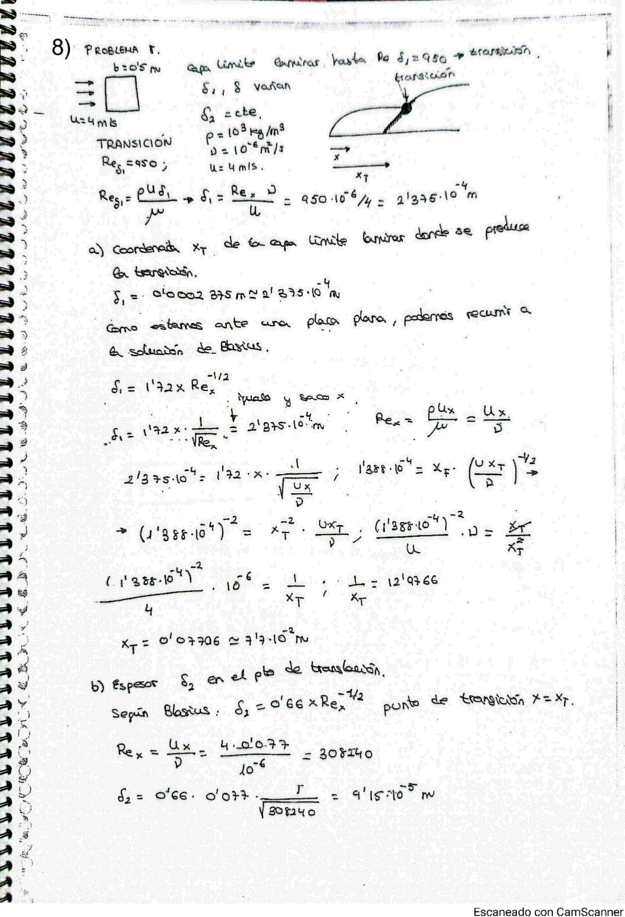 8) PROBLEMA 5.
b=0'5 m
capa límite laminar hasta Re δ₁=950 → transición.
δ₁, δ varían
transición
u=4 m/s
δ₂ = cte.
ρ = 10³ kg/m³
ν = 10⁻⁶ m²/s
u = 4 m/s.
TRANSICIÓN
Re_δ₁ = 950 ;
x
x_T
Re_δ₁ = ρUδ₁/μ → δ₁ = Re_x ν/U = 950·10⁻⁶/4 = 2'375·10⁻⁴ m
a) Coordenada x_T de la capa límite laminar donde se produce
la transición.
δ₁ = 0'0002375 m ≃ 2'375·10⁻⁴ m
Como estamos ante una placa plana, podemos recurrir a
la solución de Blasius.
δ₁ = 1'72 x Re_x^(-1/2)
igualo y saco x.
δ₁ = 1'72 x · 1/√Re_x = 2'375·10⁻⁴ m   Re_x = ρUx/μ = Ux/ν
2'375·10⁻⁴ = 1'72 · x · 1/√(Ux/ν) ; 1'388·10⁻⁴ = x_T · (Ux_T/ν)^(-1/2) →
→ (1'388·10⁻⁴)⁻² = x_T⁻² · Ux_T/ν ; (1'388·10⁻⁴)⁻²/U · ν = x_T/x_T²
(1'388·10⁻⁴)⁻²/4 · 10⁻⁶ = 1/x_T ; 1/x_T = 12'9766
x_T = 0'07706 ≃ 7'7·10⁻² m
b) Espesor δ₂ en el pto de translación.
Según Blasius: δ₂ = 0'66 x Re_x^(-1/2) punto de transición x = x_T.
Re_x = Ux/ν = 4·0'077/10⁻⁶ = 308240
δ₂ = 0'66 · 0'077 · 1/√308240 = 9'15·10⁻⁵ m
Escaneado con CamScanner